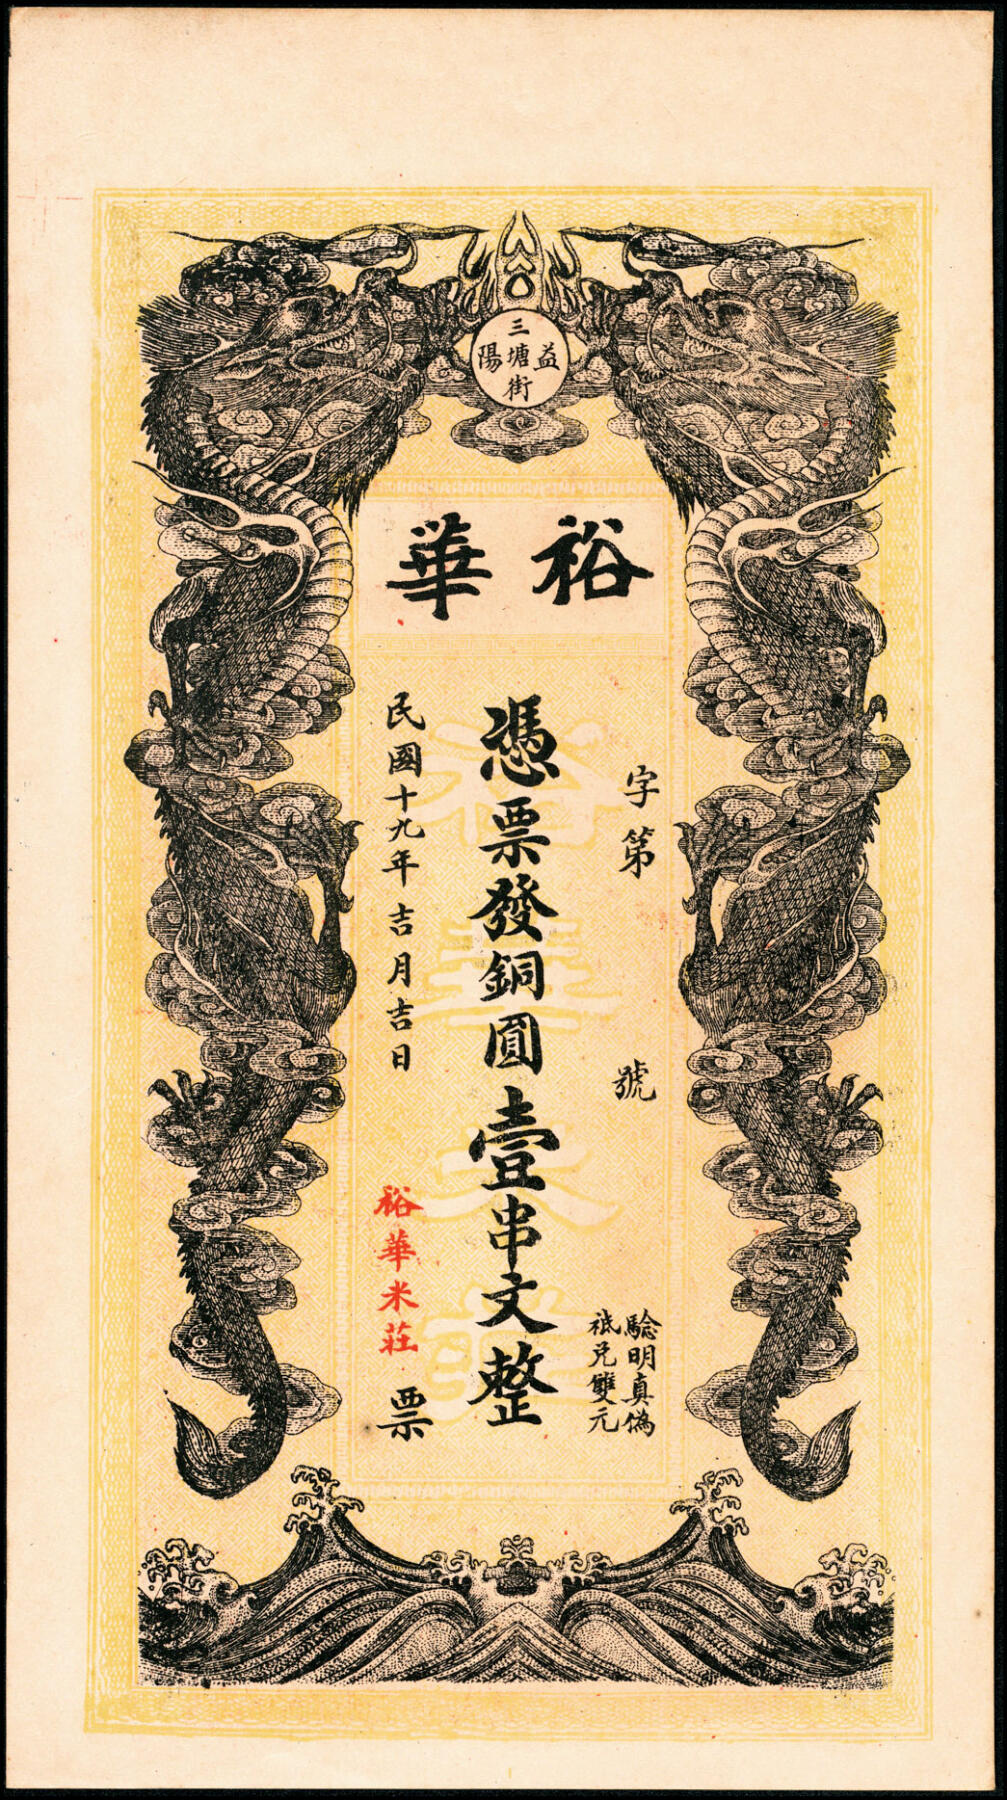 益陽
三塘街
裕華
字第 號
驗明真偽
祗兌雙元
憑票發銅圓壹串文整
民國十九年吉月吉日
裕華米莊票